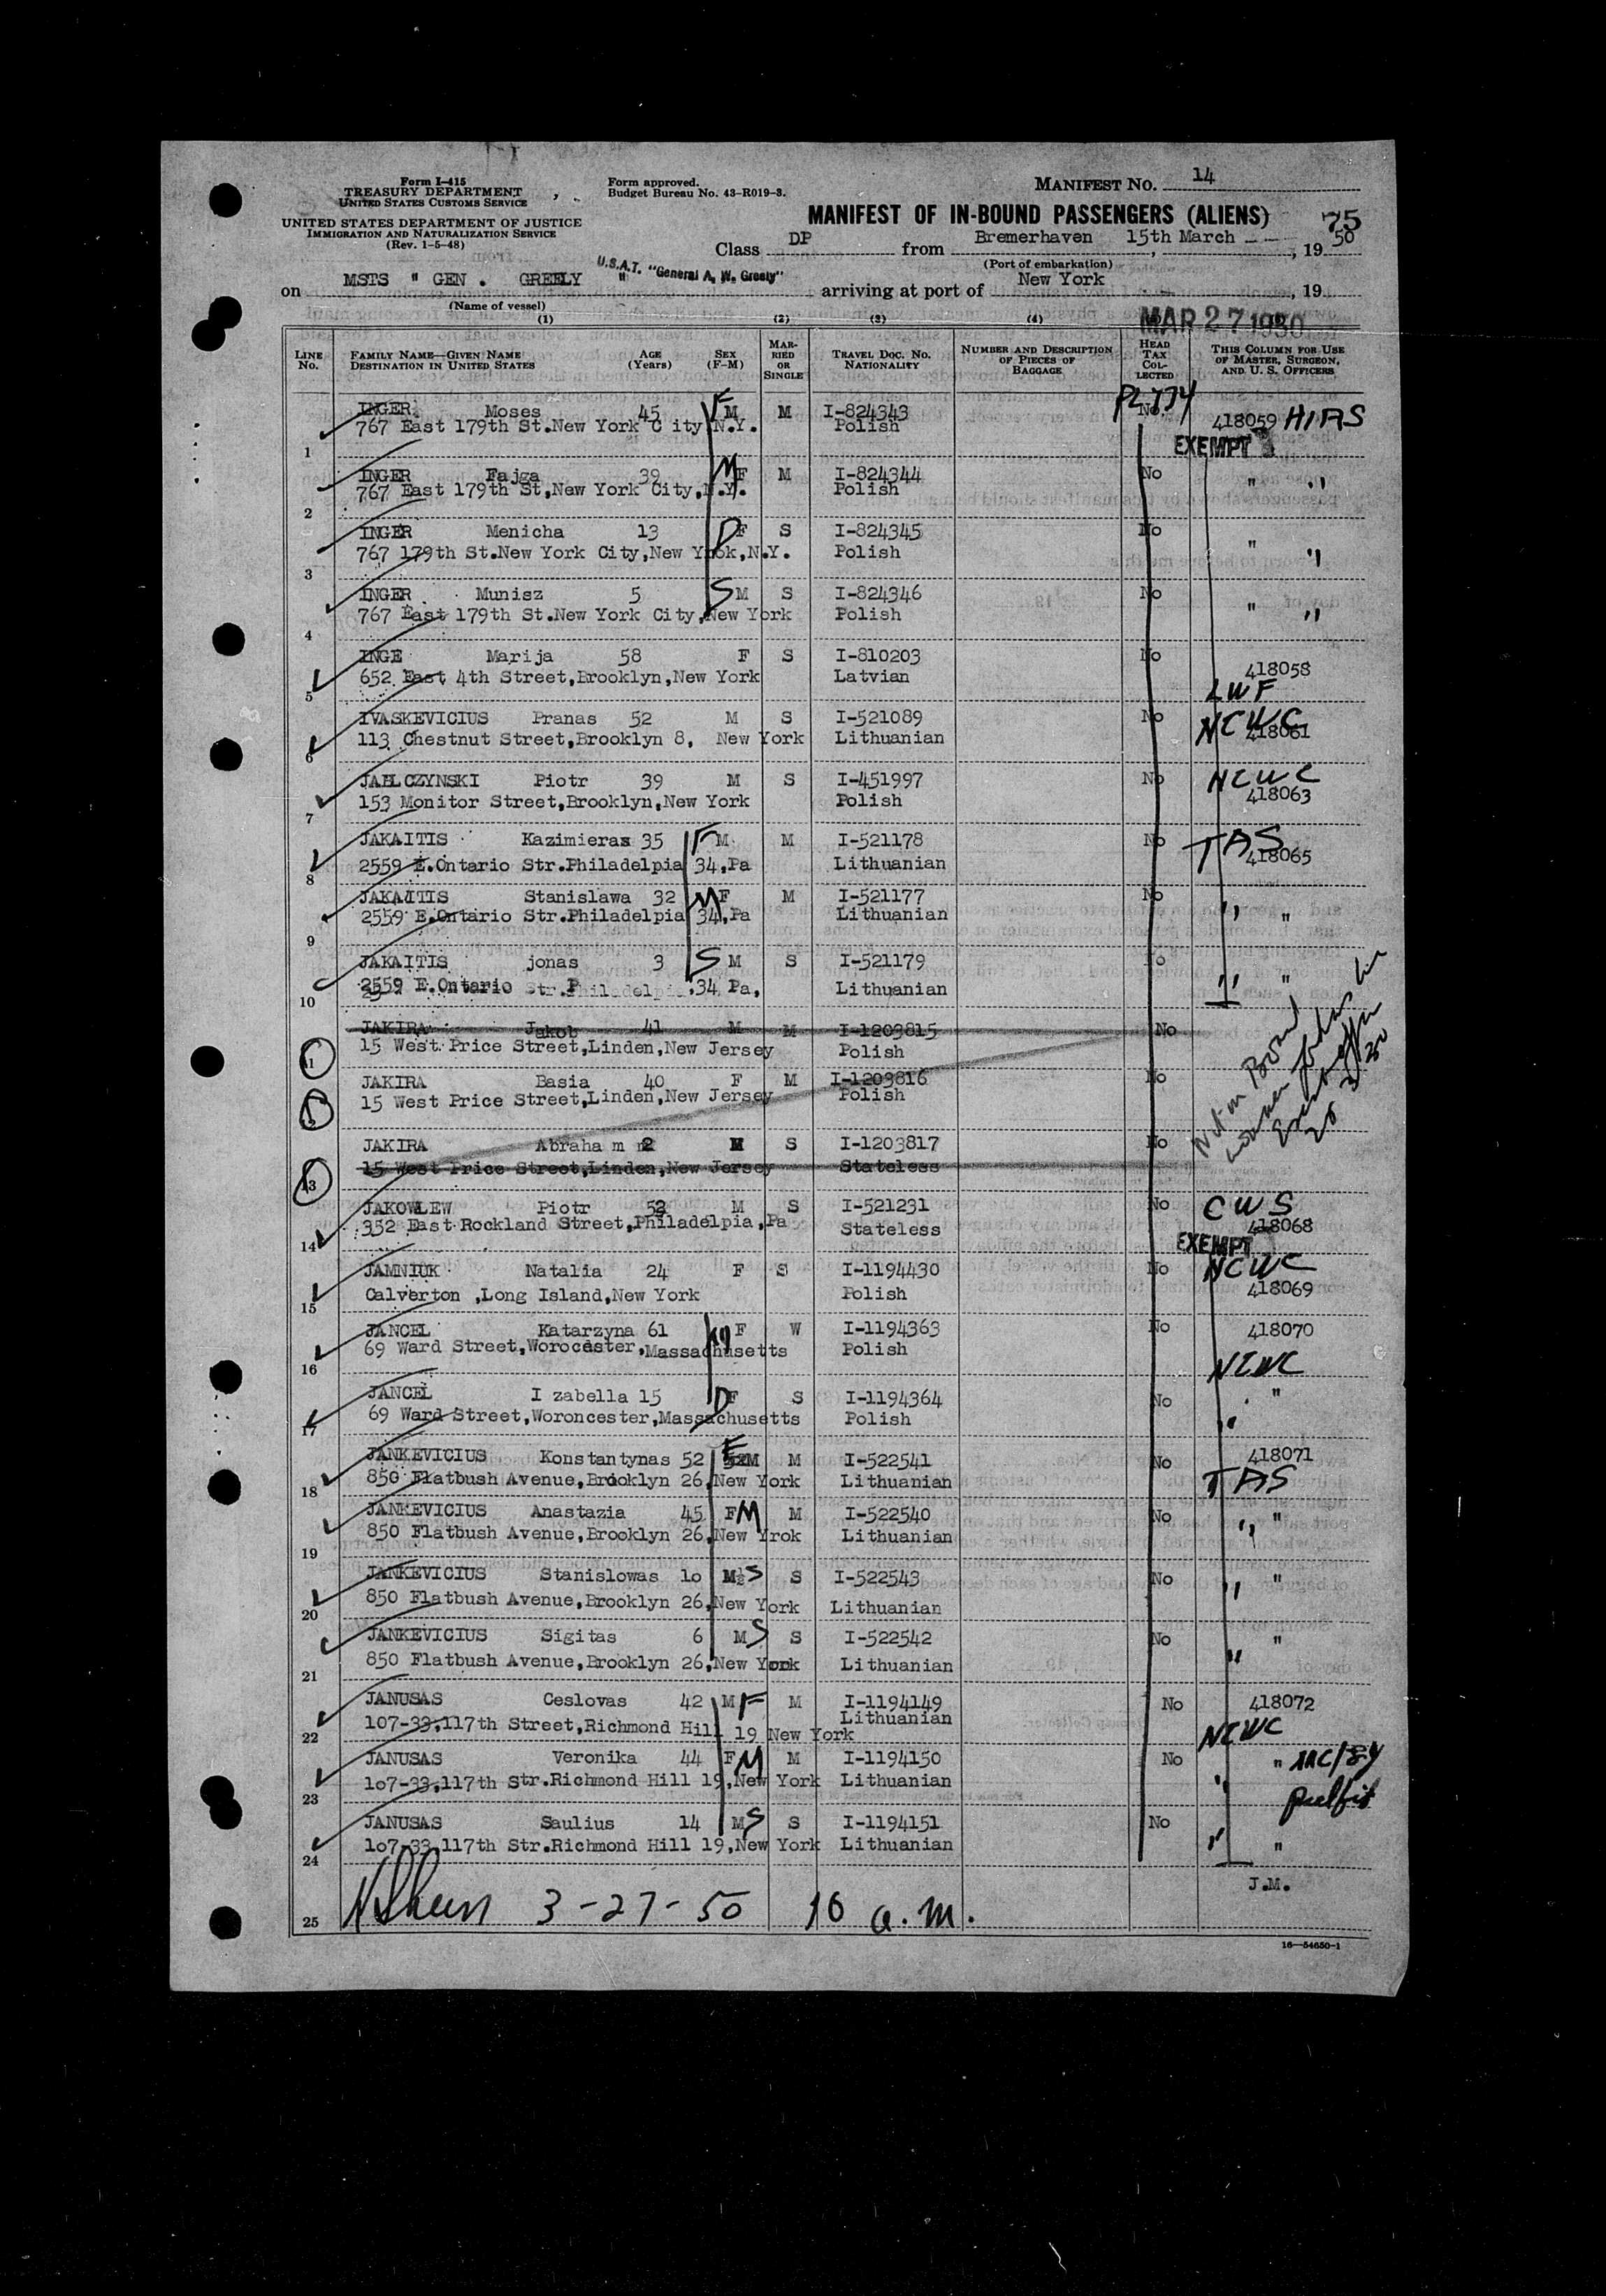 Form I-415
TREASURY DEPARTMENT
UNITED STATES CUSTOMS SERVICE
UNITED STATES DEPARTMENT OF JUSTICE
IMMIGRATION AND NATURALIZATION SERVICE
(Rev. 1-5-48)
Form approved.
Budget Bureau No. 43-R019-3.
MANIFEST NO. 14
MANIFEST OF IN-BOUND PASSENGERS (ALIENS) 75
Class DP from Bremerhaven 15th March, 1950
(Port of embarkation)
on MSTS " GEN . GREELY " U.S.A.T. "General A. W. Greely" arriving at port of New York, 19
(Name of vessel)
MAR 27 1950
(1) (2) (3) (4)
LINE NO. FAMILY NAME—GIVEN NAME DESTINATION IN UNITED STATES AGE (Years) SEX (F-M) MARRIED OR SINGLE TRAVEL DOC. NO. NATIONALITY NUMBER AND DESCRIPTION OF PIECES OF BAGGAGE HEAD TAX COLLECTED THIS COLUMN FOR USE OF MASTER, SURGEON, AND U. S. OFFICERS
PL 774
INGER Moses 45 F M M I-824343 No. 418059 HIAS
1 767 East 179th St.New York C ity N.Y. Polish EXEMPT
INGER Fajga 39 M F M I-824344 No " "
2 767 East 179th St,New York City,N.Y. Polish
INGER Menicha 13 D F S I-824345 No " "
3 767 179th St.New York City,New Yook,N.Y. Polish
INGER Munisz 5 S M S I-824346 No " "
4 767 East 179th St.New York City,New York Polish
INGE Marija 58 F S I-810203 No 418058
5 652 East 4th Street,Brooklyn,New York Latvian LWF
IVASKEVICIUS Pranas 52 M S I-521089 No NCWC
6 113 Chestnut Street,Brooklyn 8, New York Lithuanian 418061
JAHLCZYNSKI Piotr 39 M S I-451997 No NCWC
7 153 Monitor Street,Brooklyn,New York Polish 418063
JAKAITIS Kazimieras 35 F M M I-521178 No TAS
8 2559 E.Ontario Str.Philadelpia 34,Pa Lithuanian 418065
JAKAITIS Stanislawa 32 M F M I-521177 No " "
9 2559 E.Ontario Str.Philadelpia 34,Pa Lithuanian
JAKAITIS jonas 3 S M S I-521179 No " "
10 2559 E.Ontario Str.Philadelpia.34 Pa, Lithuanian
JAKIRA Jakob 41 M M I-1203815 No
11 15 West Price Street,Linden,New Jersey Polish
JAKIRA Basia 40 F M I-1203816 No
12 15 West Price Street,Linden,New Jersey Polish
Not on Board
JAKIRA Abraha m 2 M S I-1203817 No
13 15 West Price Street,Linden,New Jersey Stateless
JAKOWLEW Piotr 52 M S I-521231 No CWS
14 352 East Rockland Street,Philadelpia,Pa Stateless 418068
EXEMPT
JAMNIUK Natalia 24 F S I-1194430 No NCWC
15 Calverton ,Long Island,New York Polish 418069
JANCEL Katarzyna 61 F W I-1194363 No 418070
16 69 Ward Street,Worocester,Massachusetts Polish NCWC
JANCEL I zabella 15 D F S I-1194364 No " "
17 69 Ward Street,Woroncester,Massachusetts Polish
JANKEVICIUS Konstantynas 52 F M M I-522541 No 418071
18 850 Flatbush Avenue,Brooklyn 26,New York Lithuanian TAS
JANKEVICIUS Anastazia 45 F M M I-522540 No " "
19 850 Flatbush Avenue,Brooklyn 26,New Yrok Lithuanian
JANKEVICIUS Stanislowas 10 M S S I-522543 No " "
20 850 Flatbush Avenue,Brooklyn 26,New York Lithuanian
JANKEVICIUS Sigitas 6 M S S I-522542 No " "
21 850 Flatbush Avenue,Brooklyn 26,New York Lithuanian
JANUSAS Ceslovas 42 M F M I-1194149 No 418072
22 107-33,117th Street,Richmond Hill 19 New York Lithuanian NCWC
JANUSAS Veronika 44 F M M I-1194150 No " "
23 107-33,117th Str.Richmond Hill 19,New York Lithuanian
JANUSAS Saulius 14 M S S I-1194151 No " "
24 107-33,117th Str.Richmond Hill 19,New York Lithuanian
J.M.
25 3-27-50 10 a.m.
16—54650-1